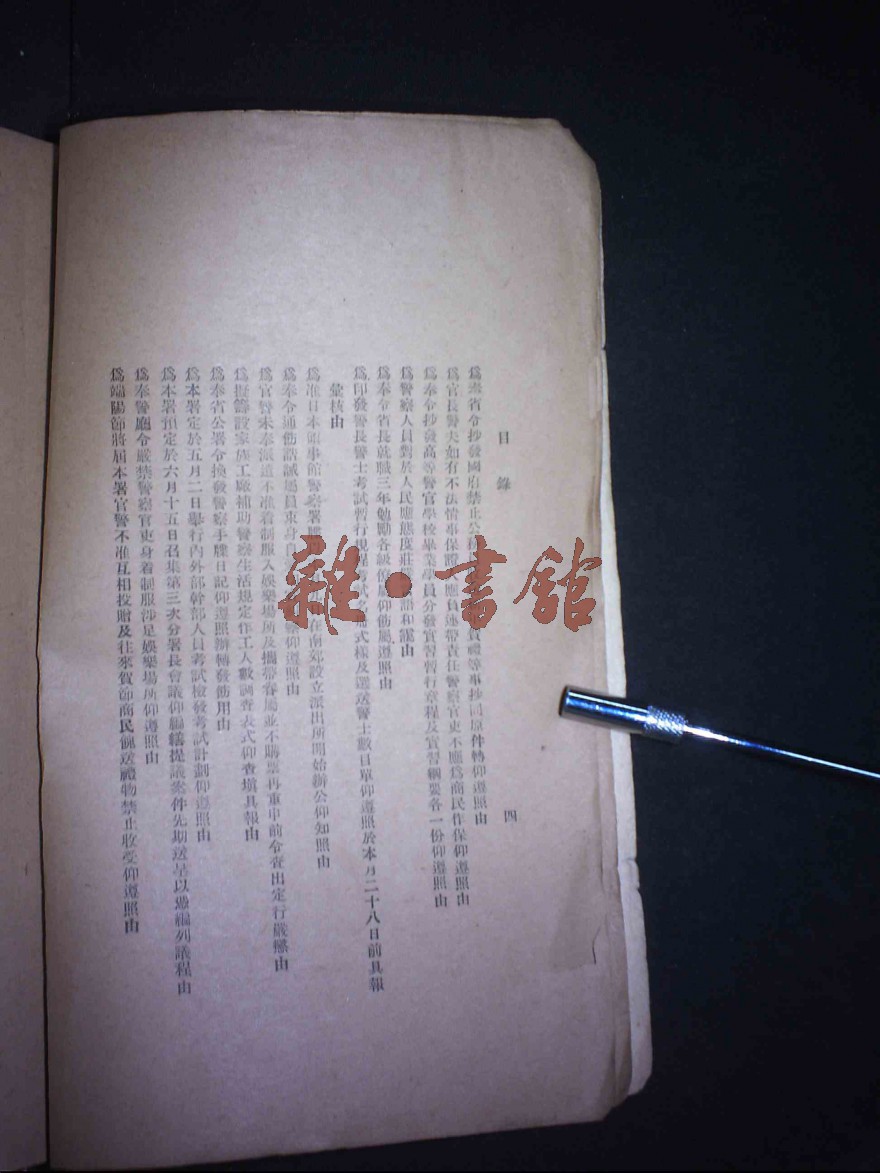 目錄 四
為奉省令抄發國府禁止公 禮等事抄同原件轉仰遵照由
為官長警夫如有不法情事保證 應負連帶責任警察官吏不應為商民作保仰遵照由
為奉令抄發高等警官學校畢業學員分發實習暫行章程及實習綱要各一份仰遵照由
為警察人員對於人民應態度莊 語和靄由
為奉令省長就職三年勉勵各級 仰飭屬遵照由
為印發警長警士考試暫行規 式樣及選送警士數目單仰遵照於本月二十八日前具報
彙核由
為准日本領事館警察署 在南郊設立派出所開始辦公仰知照由
為奉令通飭誥誡屬員束身自 仰遵照由
為官警未奉派遣不准着制服入娛樂場所及攜帶眷屬並不購票再重申前令查出定行嚴懲由
為擬籌設家族工廠補助警察生活規定作工人數調查表式仰查填具報由
為奉省公署令換發警察手牒日記仰遵照辦轉發飭用由
為本署定於五月二日舉行內外部幹部人員考試檢發考試計劃仰遵照由
為本署預定於六月十五日召集第三次分署長會議仰編繕提議案件先期送呈以憑編列議程由
為奉警廳令嚴禁警察官吏身着制服涉足娛樂場所仰遵照由
為端陽節將屆本署官警不准互相投贈及往來賀節商民餽送禮物禁止收受仰遵照由
雜·書館